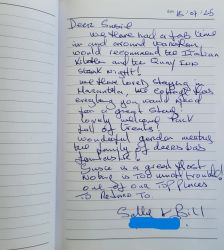 16/07/25
Dear Susie
We have had a fab time
in and around
would recommend the Italian
Kitchen and the Quay for
steak night!
We have loved staying in
the cottage has
everything you would need
for a great stay!
Lovely welcome Pack
full of treats!
Wonderful garden
the family of deers was
fantastic!
Susie is a great host
Nothing is too much trouble!
one of our Top places
to Return To.
Sally & Bill